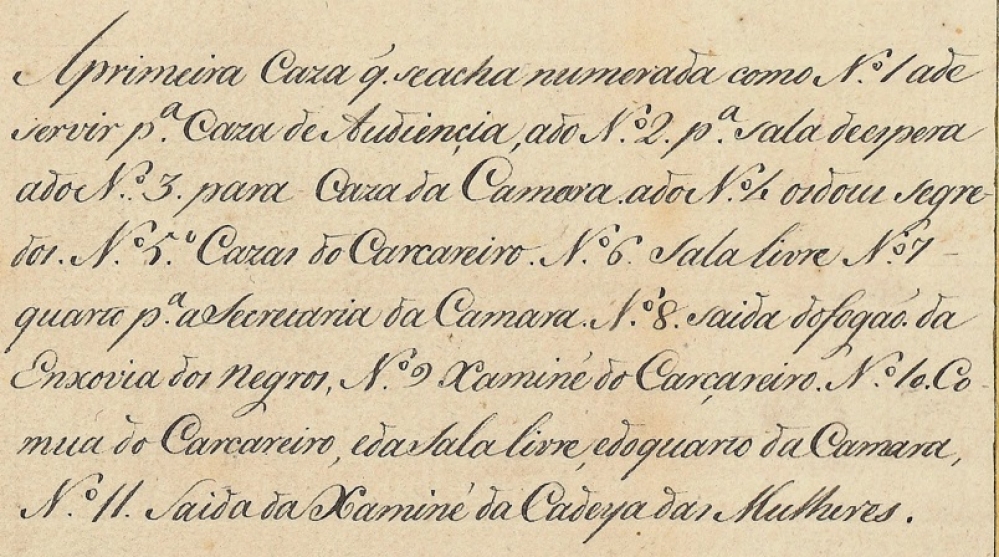 A primeira Caza q̃. seacha numerada como N.º 1 ade
servir p.ª Caza de Audiençia, ado N.º 2. p.ª sala decspera
ado N.º 3. para Caza da Camera. ado N.º 4 os dous segre-
dos. N.º 5.º Cazas do Carcareiro. N.º 6. Sala livre N.º 7 -
quarto p.ª a Secretaria da Camara. N.º 8. saida dofogaó. da
Enxovia dos Negros, N.º 9 Xaminé do Carçareiró. N.º 10. Co-
muã do Carcareiro, eda Sala livre, edoquarto da Camara,
N.º 11. Saida da Xaminé da Cadeya das Mulheres.